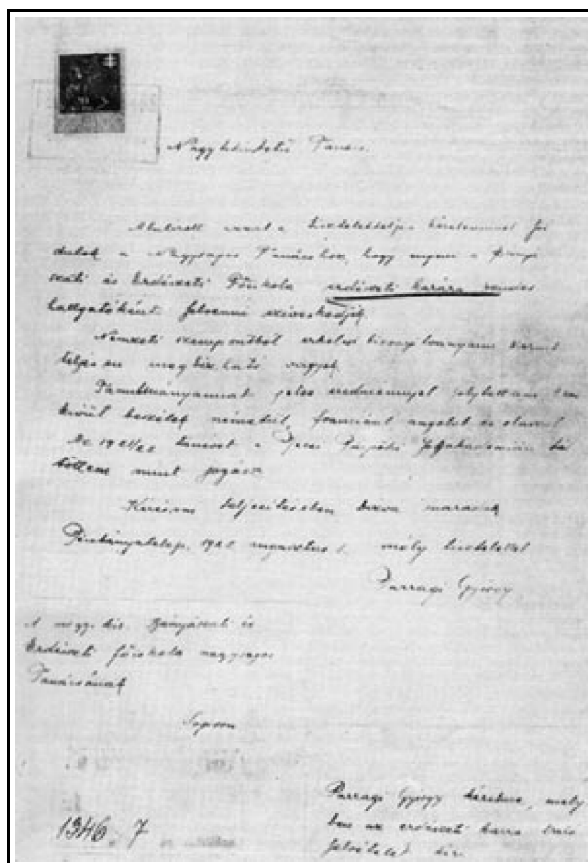 Nagytekintetű Tanács.
Alulírott azzal a
dulok a Nagyságos Tanácshoz, hogy engem a
szati és Erdészeti Főiskola erdészeti karára rendes
hallgatóként felvenni szíveskedjék.
Nemzeti szempontból erkölcsi bizonyítványaim szerint
teljesen megbízható vagyok.
Tanulmányaimat jeles eredménnyel folytattam,
kívül beszélek németül, franciául angolul és olaszul
Az tanévet a Pécsi Püspöki Jogakadémián
töttem mint jogász
Kérésem teljesítésében bízva maradok
augusztus 1. mély tisztelettel
Parragi György
A magy. kir. Bányászati és
Erdészeti főiskola nagyságos
Tanácsának
Sopron
1346 7
Parragi György kérelme, mely
ben az erdészeti karra való
felvételét kéri